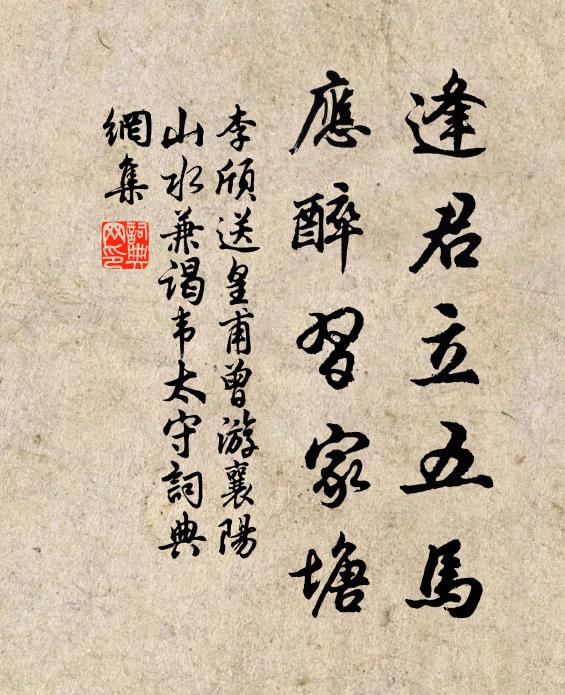 逢君立五馬
應醉習家塘
李頎送皇甫曾游襄陽
山水兼謁韦太守詞典
網集
詞典
网印